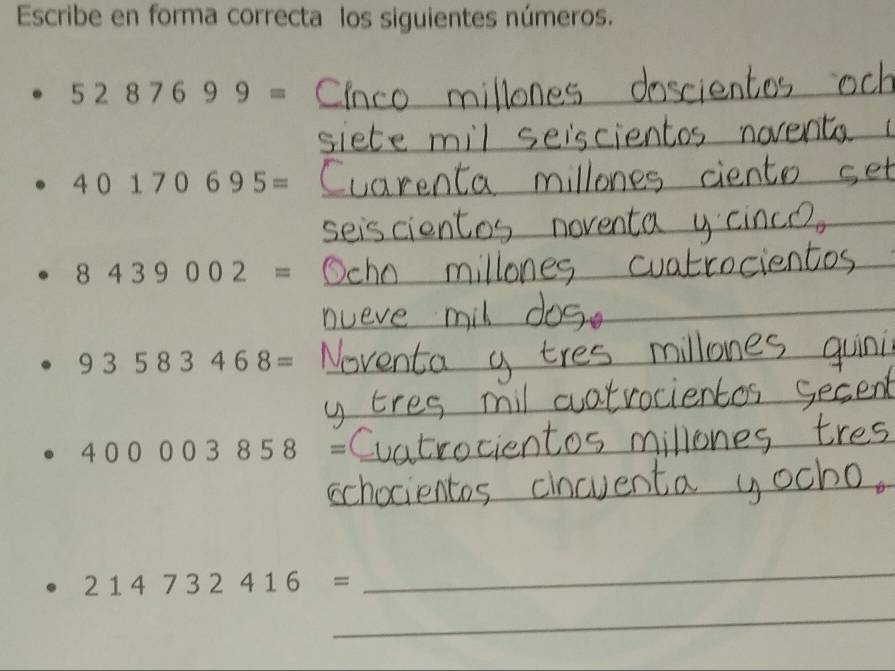 Escribe en forma correcta los siguientes números.
• 5 2 8 7 6 9 9 = Cinco millones doscientos och
siete mil seiscientos noventa
• 4 0 1 7 0 6 9 5 = Cuarenta millones ciento set
seiscientos noventa y cinco.
• 8 4 3 9 0 0 2 = Ocho millones cuatrocientos
nueve mil dos.
• 9 3 5 8 3 4 6 8 = Noventa y tres millones quini
y tres mil cuatrocientos sesent
• 4 0 0 0 0 3 8 5 8 = Cuatrocientos millones tres
ochocientos cincuenta y ocho.
• 2 1 4 7 3 2 4 1 6 =